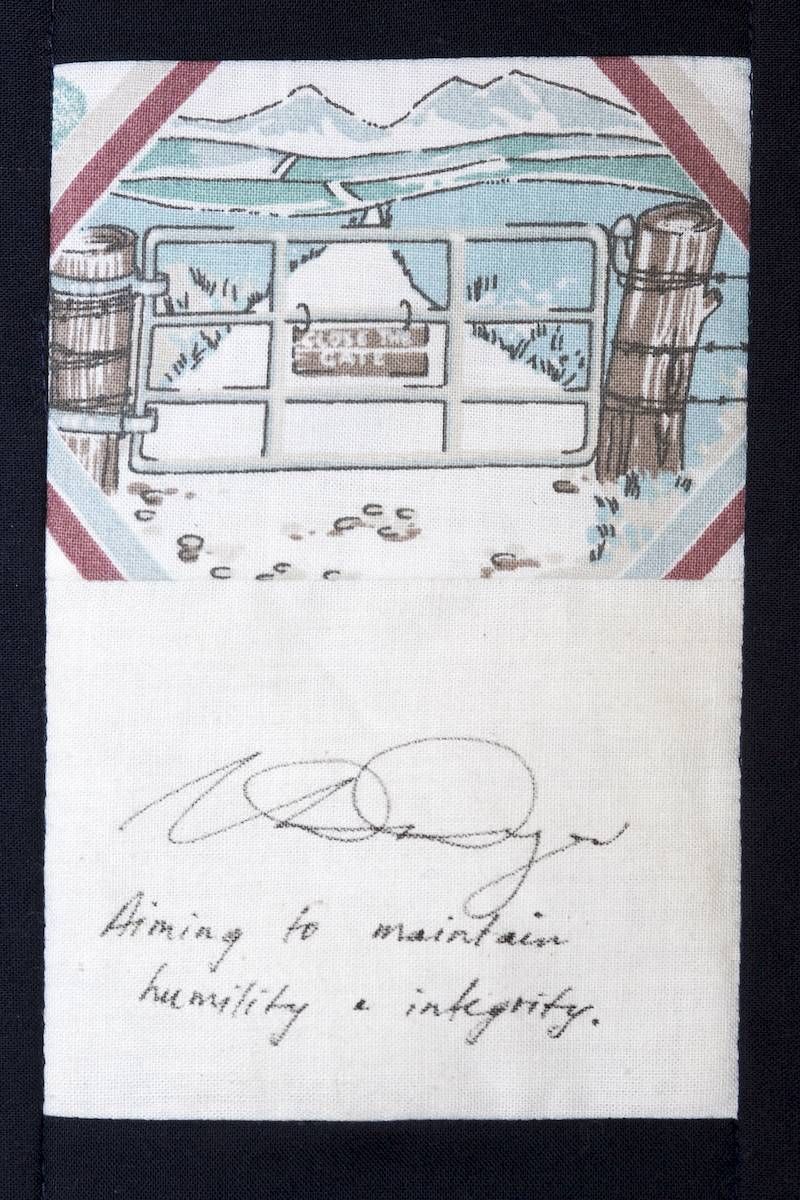 CLOSE THE
GATE
Aiming to maintain
humility & integrity.